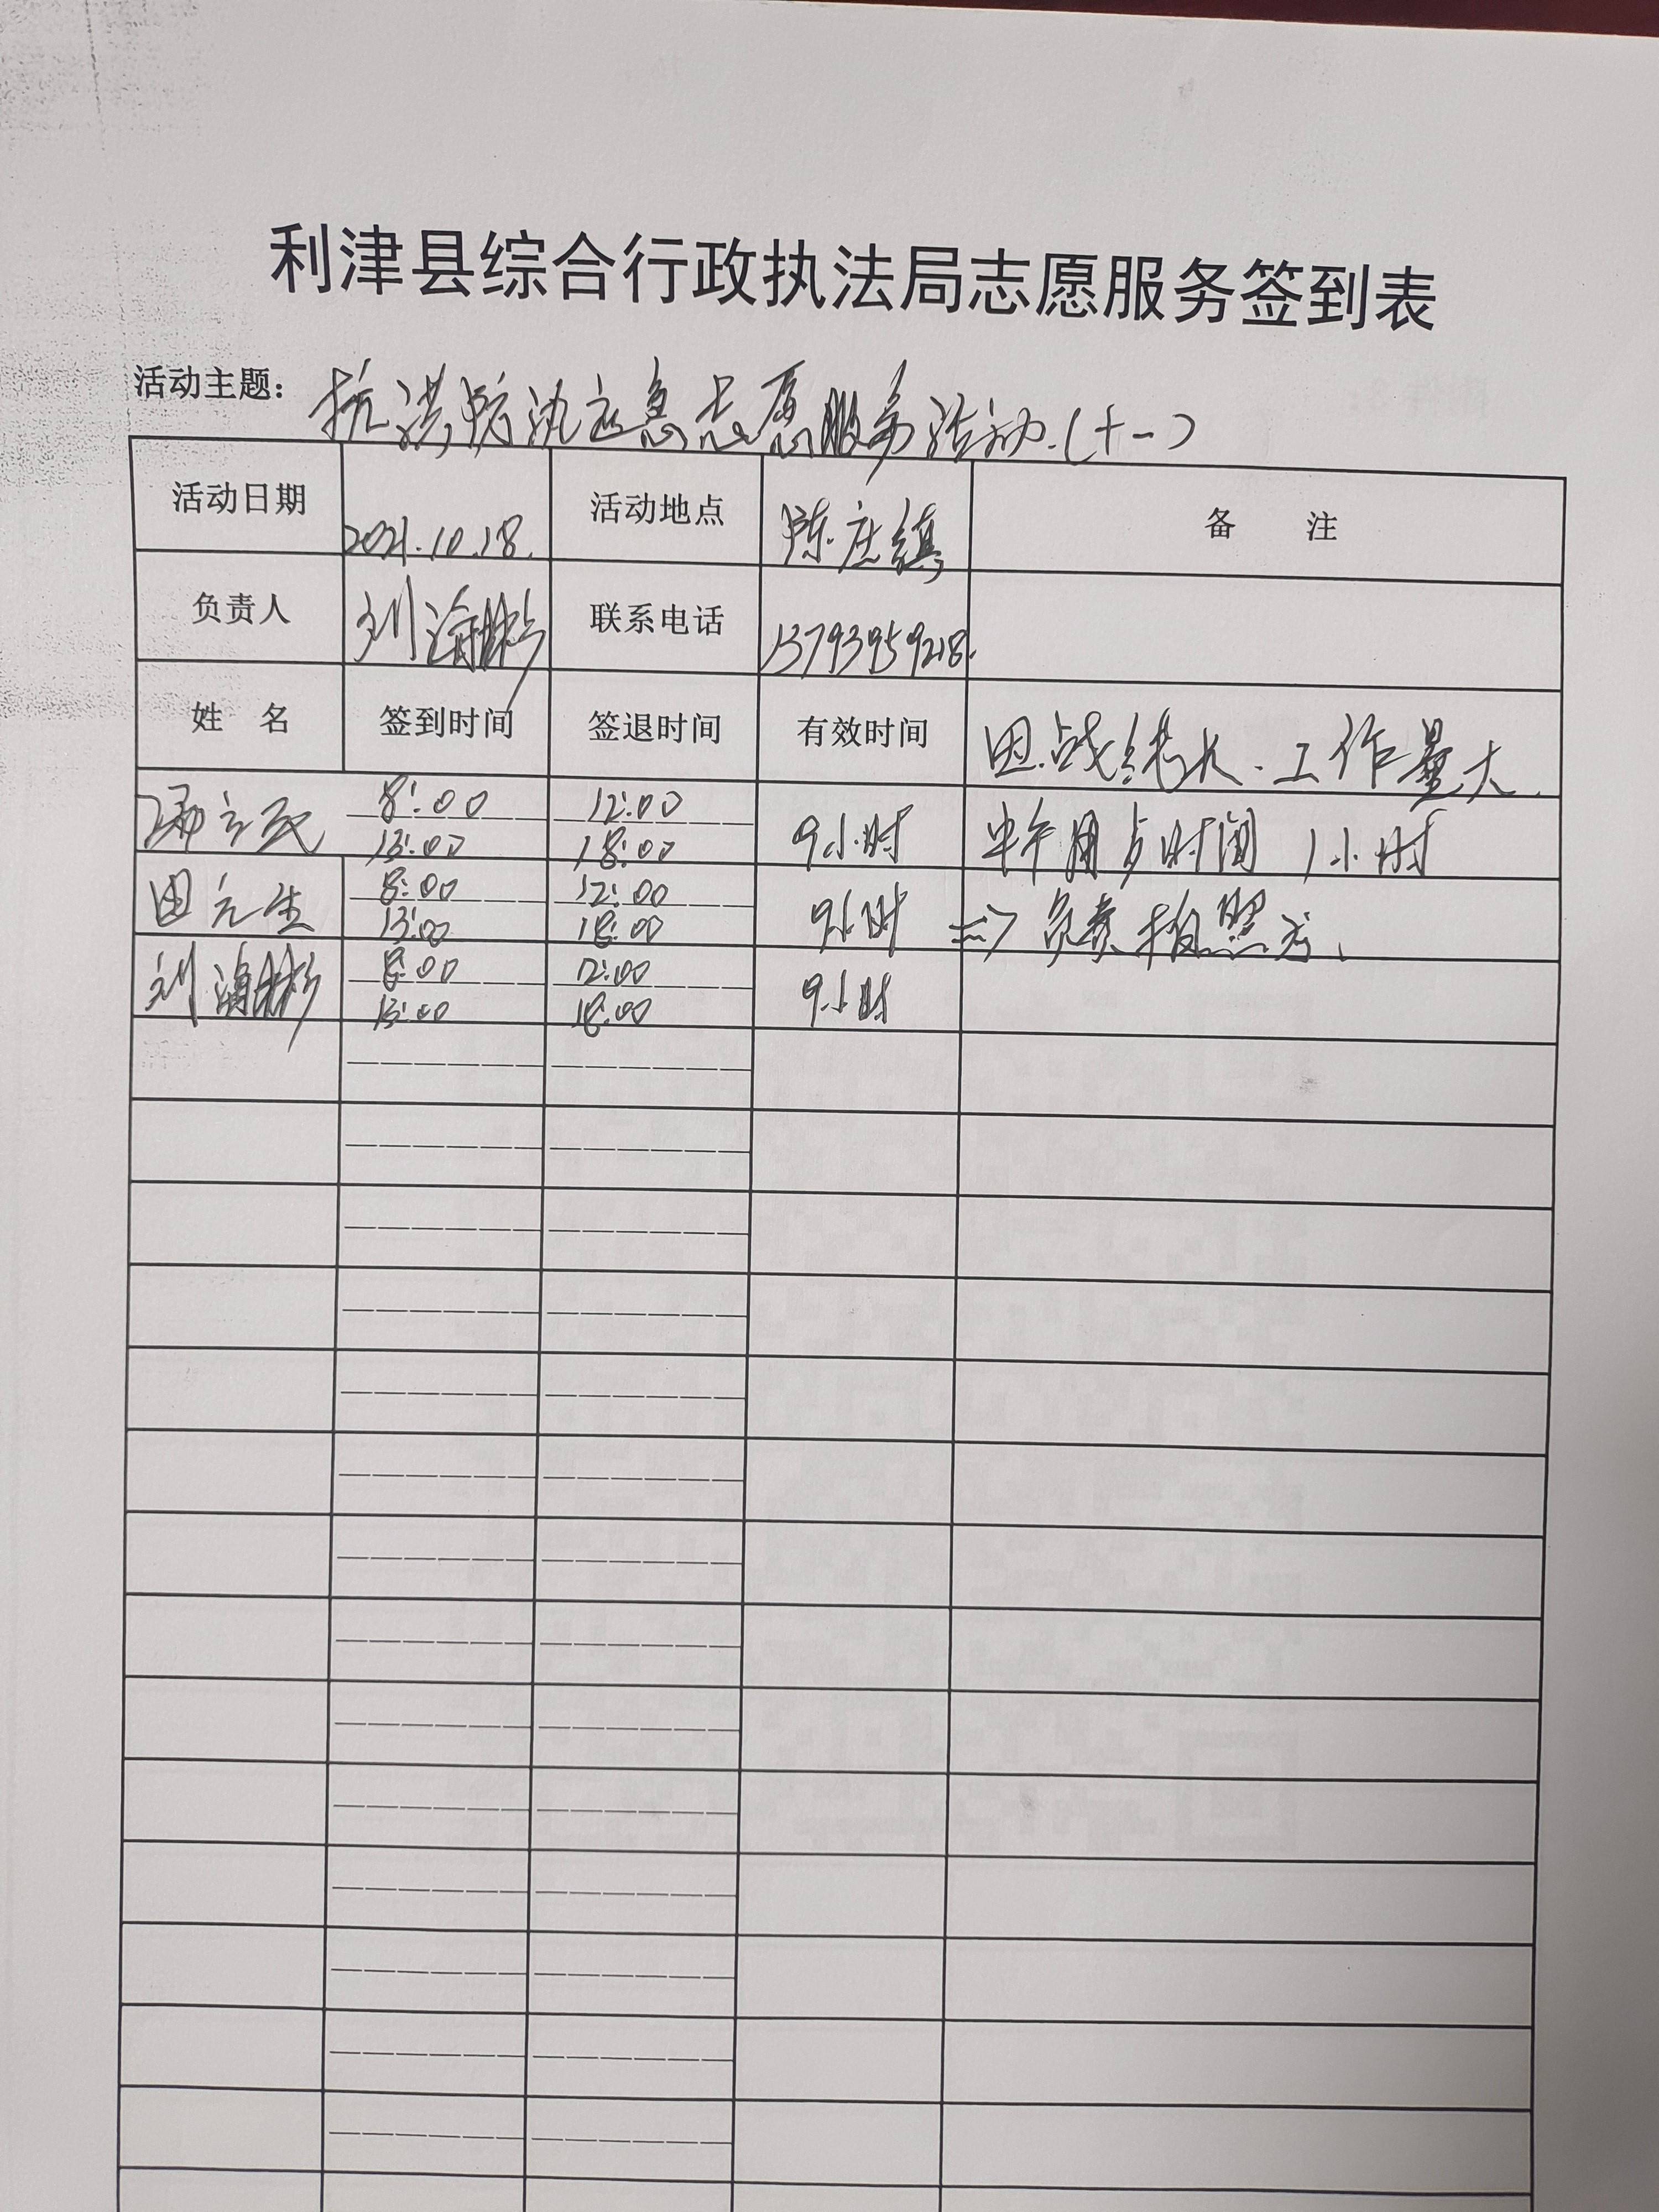 利津县综合行政执法局志愿服务签到表
活动主题：抗洪防汛应急志愿服务活动.（十一）
活动日期 2021.10.18. 活动地点 陈庄镇 备 注
负责人 刘 联系电话 13793959218.
姓 名 签到时间 签退时间 有效时间 因战线长.工作量大.
8:00 12:00
13:00 18:00 9小时 中午用 时间 1小时
田元生 8:00 12:00
13:00 18:00 9小时 => 负责拍照
刘 8:00 12:00
13:00 18:00 9小时